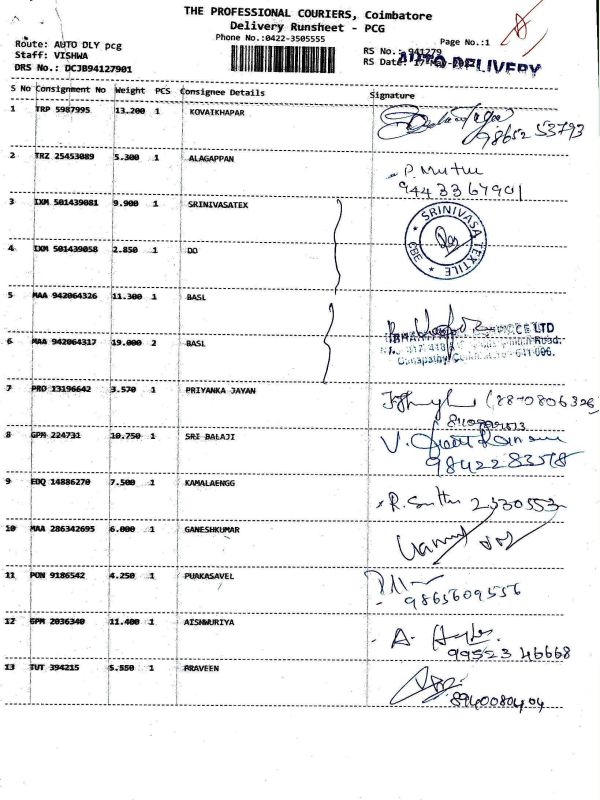 THE PROFESSIONAL COURIERS, Coimbatore
Delivery Runsheet - PCG
Phone No.:0422-3505555
Page No.:1
Route: AUTO DLY pcg
Staff: VISHWA
DRS No.: DCJB94127901
RS No.: 941279
RS Date:
AUTO DELIVERY
S No Consignment No Weight PCS Consignee Details Signature
1 TRP 5987995 13.200 1 KOVAIKHAPAR
98652 53793
2 TRZ 25453089 5.300 1 ALAGAPPAN
P. Muthu
94433 67901
3 IXM 501439081 9.900 1 SRINIVASATEX
SRINIVASA TEXTILE
CBE
4 IXM 501439058 2.850 1 DO
5 MAA 942064326 11.300 1 BASL
6 MAA 942064317 19.000 2 BASL
Ganapathy, Coimbatore - 641 006.
7 PRO 13196642 3.570 1 PRIYANKA JAYAN
(8870806326
8 GPM 224731 10.750 1 SRI BALAJI
9842283578
9 EDQ 14886270 7.500 1 KAMALAENGG
2330553
10 MAA 286342695 6.000 1 GANESHKUMAR
11 PON 9186542 4.250 1 PUAKASAVEL
9865609556
12 GPM 2036340 11.400 1 AISHWURIYA
99523 46668
13 TUT 394215 5.550 1 PRAVEEN
8940080404